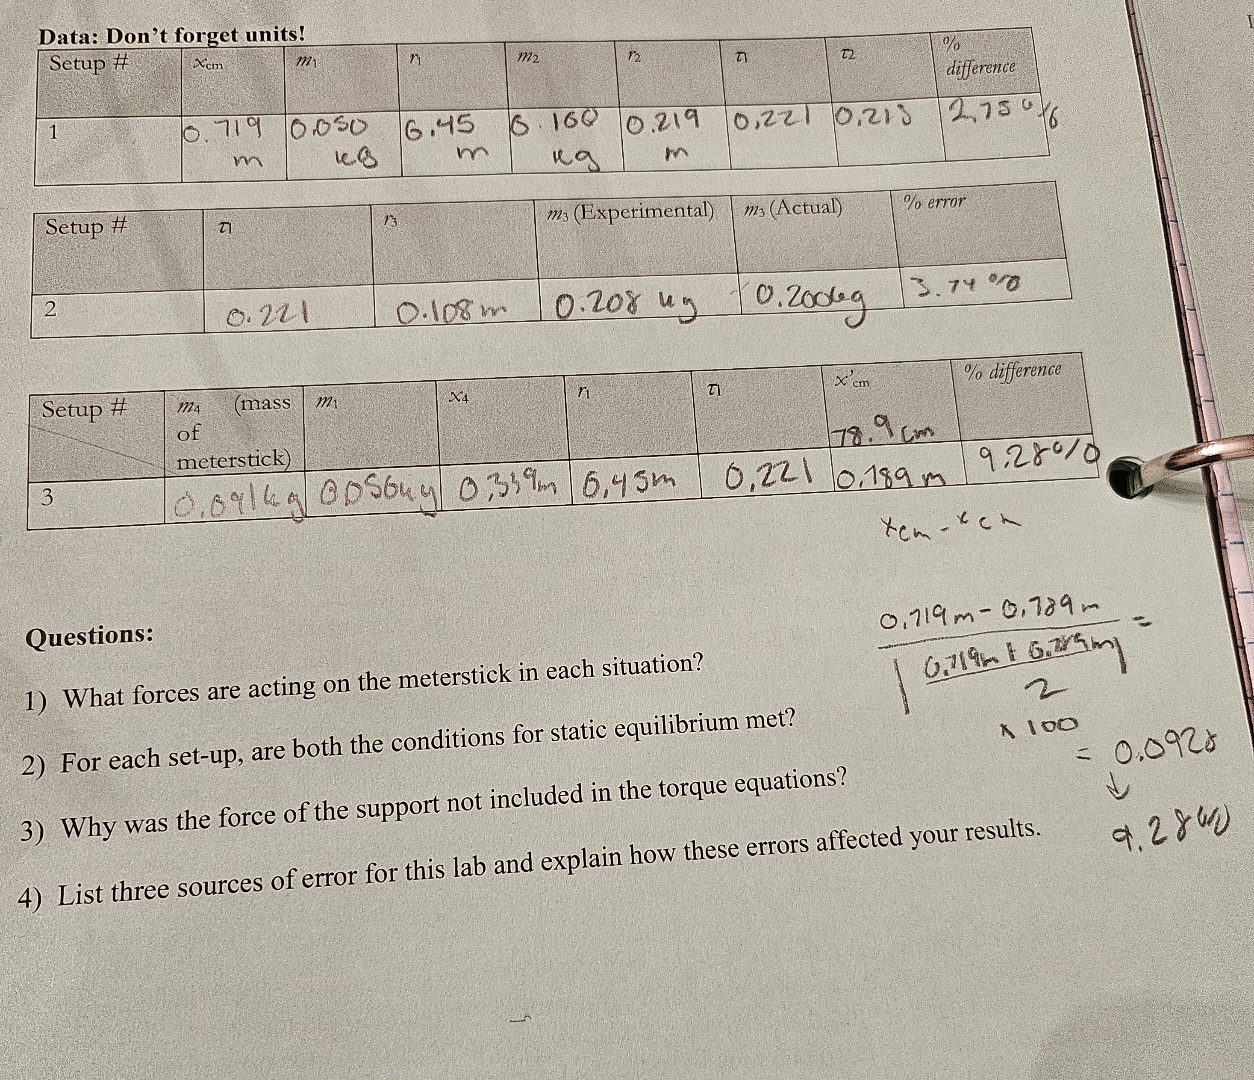 Data: Don't forget units!
Setup # xcm m1 r1 m2 r2 τ1 τ2 % difference
1 0.719 m 0.050 kg 0.45 m 0.100 kg 0.219 m 0.221 0.215 2.75%
Setup # τ1 r3 m3 (Experimental) m3 (Actual) % error
2 0.221 0.108m 0.208 kg 0.200kg 3.74%
Setup # m4 (mass of meterstick) m1 x4 r1 τ1 x'cm 78.9 cm % difference
3 0.091kg 0.050kg 0.339m 0.45m 0.221 0.789m 9.28%
xcm - xcm
Questions:
0.719m - 0.789m =
1) What forces are acting on the meterstick in each situation?
| 0.719m + 0.789m |
2
2) For each set-up, are both the conditions for static equilibrium met?
x 100
= 0.0928
3) Why was the force of the support not included in the torque equations?
↓
9.28%
4) List three sources of error for this lab and explain how these errors affected your results.